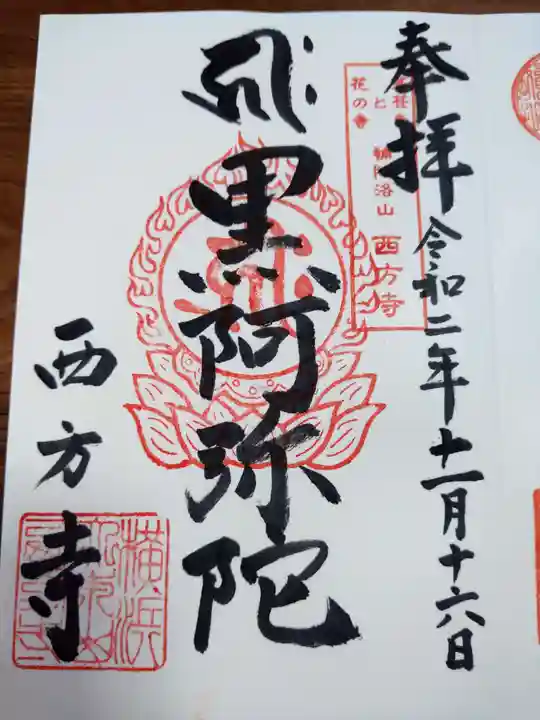 奉拝 令和二年十一月十六日
花の寺
補陀洛山 西方寺
黒阿弥陀
西方寺
横浜